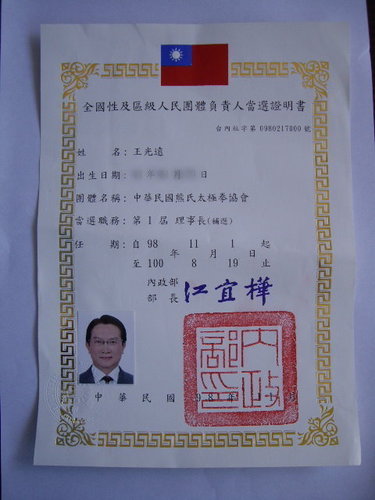 全國性及區級人民團體負責人當選證明書
台內社字第0980217800號
姓名：王光遠
出生日期：
團體名稱：中華民國熊氏太極拳協會
當選職務：第1屆 理事長(補選)
任期：自98年11月1日起
至100年8月19日止
內政部
部長 江宜樺
內政部印
中華民國